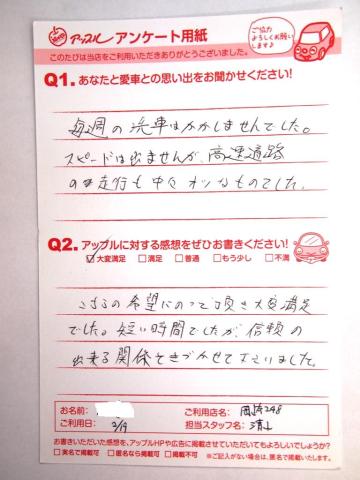 アップル アンケート用紙
ご協力
よろしくお願い
します♪
このたびは当店をご利用いただきありがとうございました。
Q1. あなたと愛車との思い出をお聞かせください!
毎週の洗車はかかしませんでした。
スピードは出ませんが、高速道路
の走行も中々オツなものでした。
Q2. アップルに対する感想をぜひお書きください!
☑大変満足 □満足 □普通 □もう少し □不満
こちらの希望にのって頂き大変満足
でした。短い時間でしたが、信頼の
出来る関係をきづかせてもらいました。
お名前:
ご利用店名: 岡崎248
ご利用日: 3/19
担当スタッフ名:
お書きいただいた感想を、アップルHPや広告に掲載させていただいてもよろしいでしょうか?
□実名で掲載可 □匿名なら掲載可 □掲載不可 ※ご記入がない場合は、匿名にて掲載いたします。